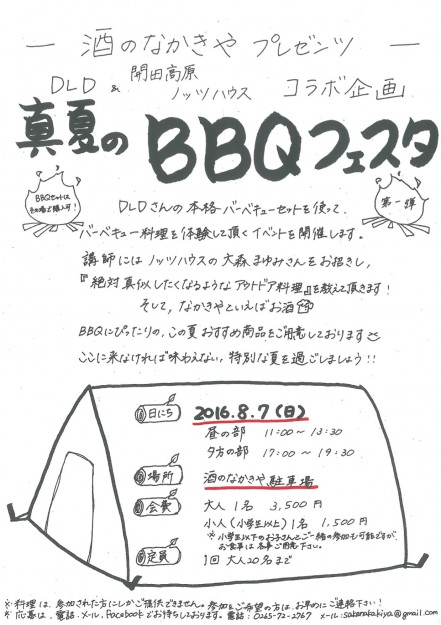 ― 酒のなかきや プレゼンツ ―
DLD & 開田高原 ノッツハウス コラボ企画
真夏の BBQフェスタ
BBQセットは
その場で購入可!
第一弾
DLDさんの本格バーベキューセットを使って、
バーベキュー料理を体験して頂くイベントを開催します。
講師にはノッツハウスの大森まゆみさんをお招きし、
『絶対真似したくなるようなアウトドア料理』を教えて頂きます!
そして、なかきやといえばお酒
BBQにぴったりの、この夏おすすめ商品をご用意しております
ここに来なければ味わえない、特別な夏を過ごしましょう!!
日にち 2016.8.7(日)
昼の部 11:00～13:30
夕方の部 17:00～19:30
場所 酒のなかきや 駐車場
会費 大人1名 3,500円
小人(小学生以上)1名 1,500円
※小学生以下のお子さんとご一緒の参加も可能ですが、
お食事は各事ご用意下さい。
定員 1回 大人20名まで
※料理は、参加された方にしかご提供できません。参加をご希望の方は、お早めにご連絡下さい!
※応募は、電話、メール、Facebookでお待ちしております。電話:0265-72-2767 メール:sakenakakiya@gmail.com